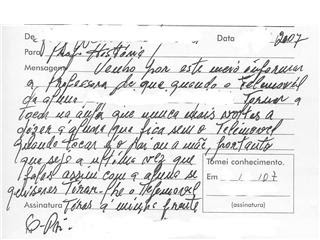 De Data 2007
Para Prof. História!
Mensagem Venho por este meio informar
a Professora de que quando o Telemovel
da aluna Tornar a
Tocar na aula que nunca mais voltes a
dizer a aluna que fica sem o Telemovel
Quando tocar é o pai ou a mãe, portanto
que seja a ultima vez que
fales assim com a aluna se
quiseres Tirar-lhe o Telemovel
Tomei conhecimento.
Em / 1 / 07
Assinatura Tiras à minha frente
Assinatura